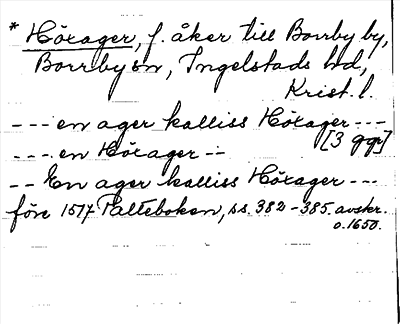 * Hörager, f. åker till Borrby by,
Borrby sn, Ingelstads hd,
Krist. l.
--- en ager kalliss Hörager ---
--- en Hörager -- [3 ggr]
-- En ager kalliss Hörager ---
före 1517 Palteboken, ss. 382-385. avskr.
o. 1650.